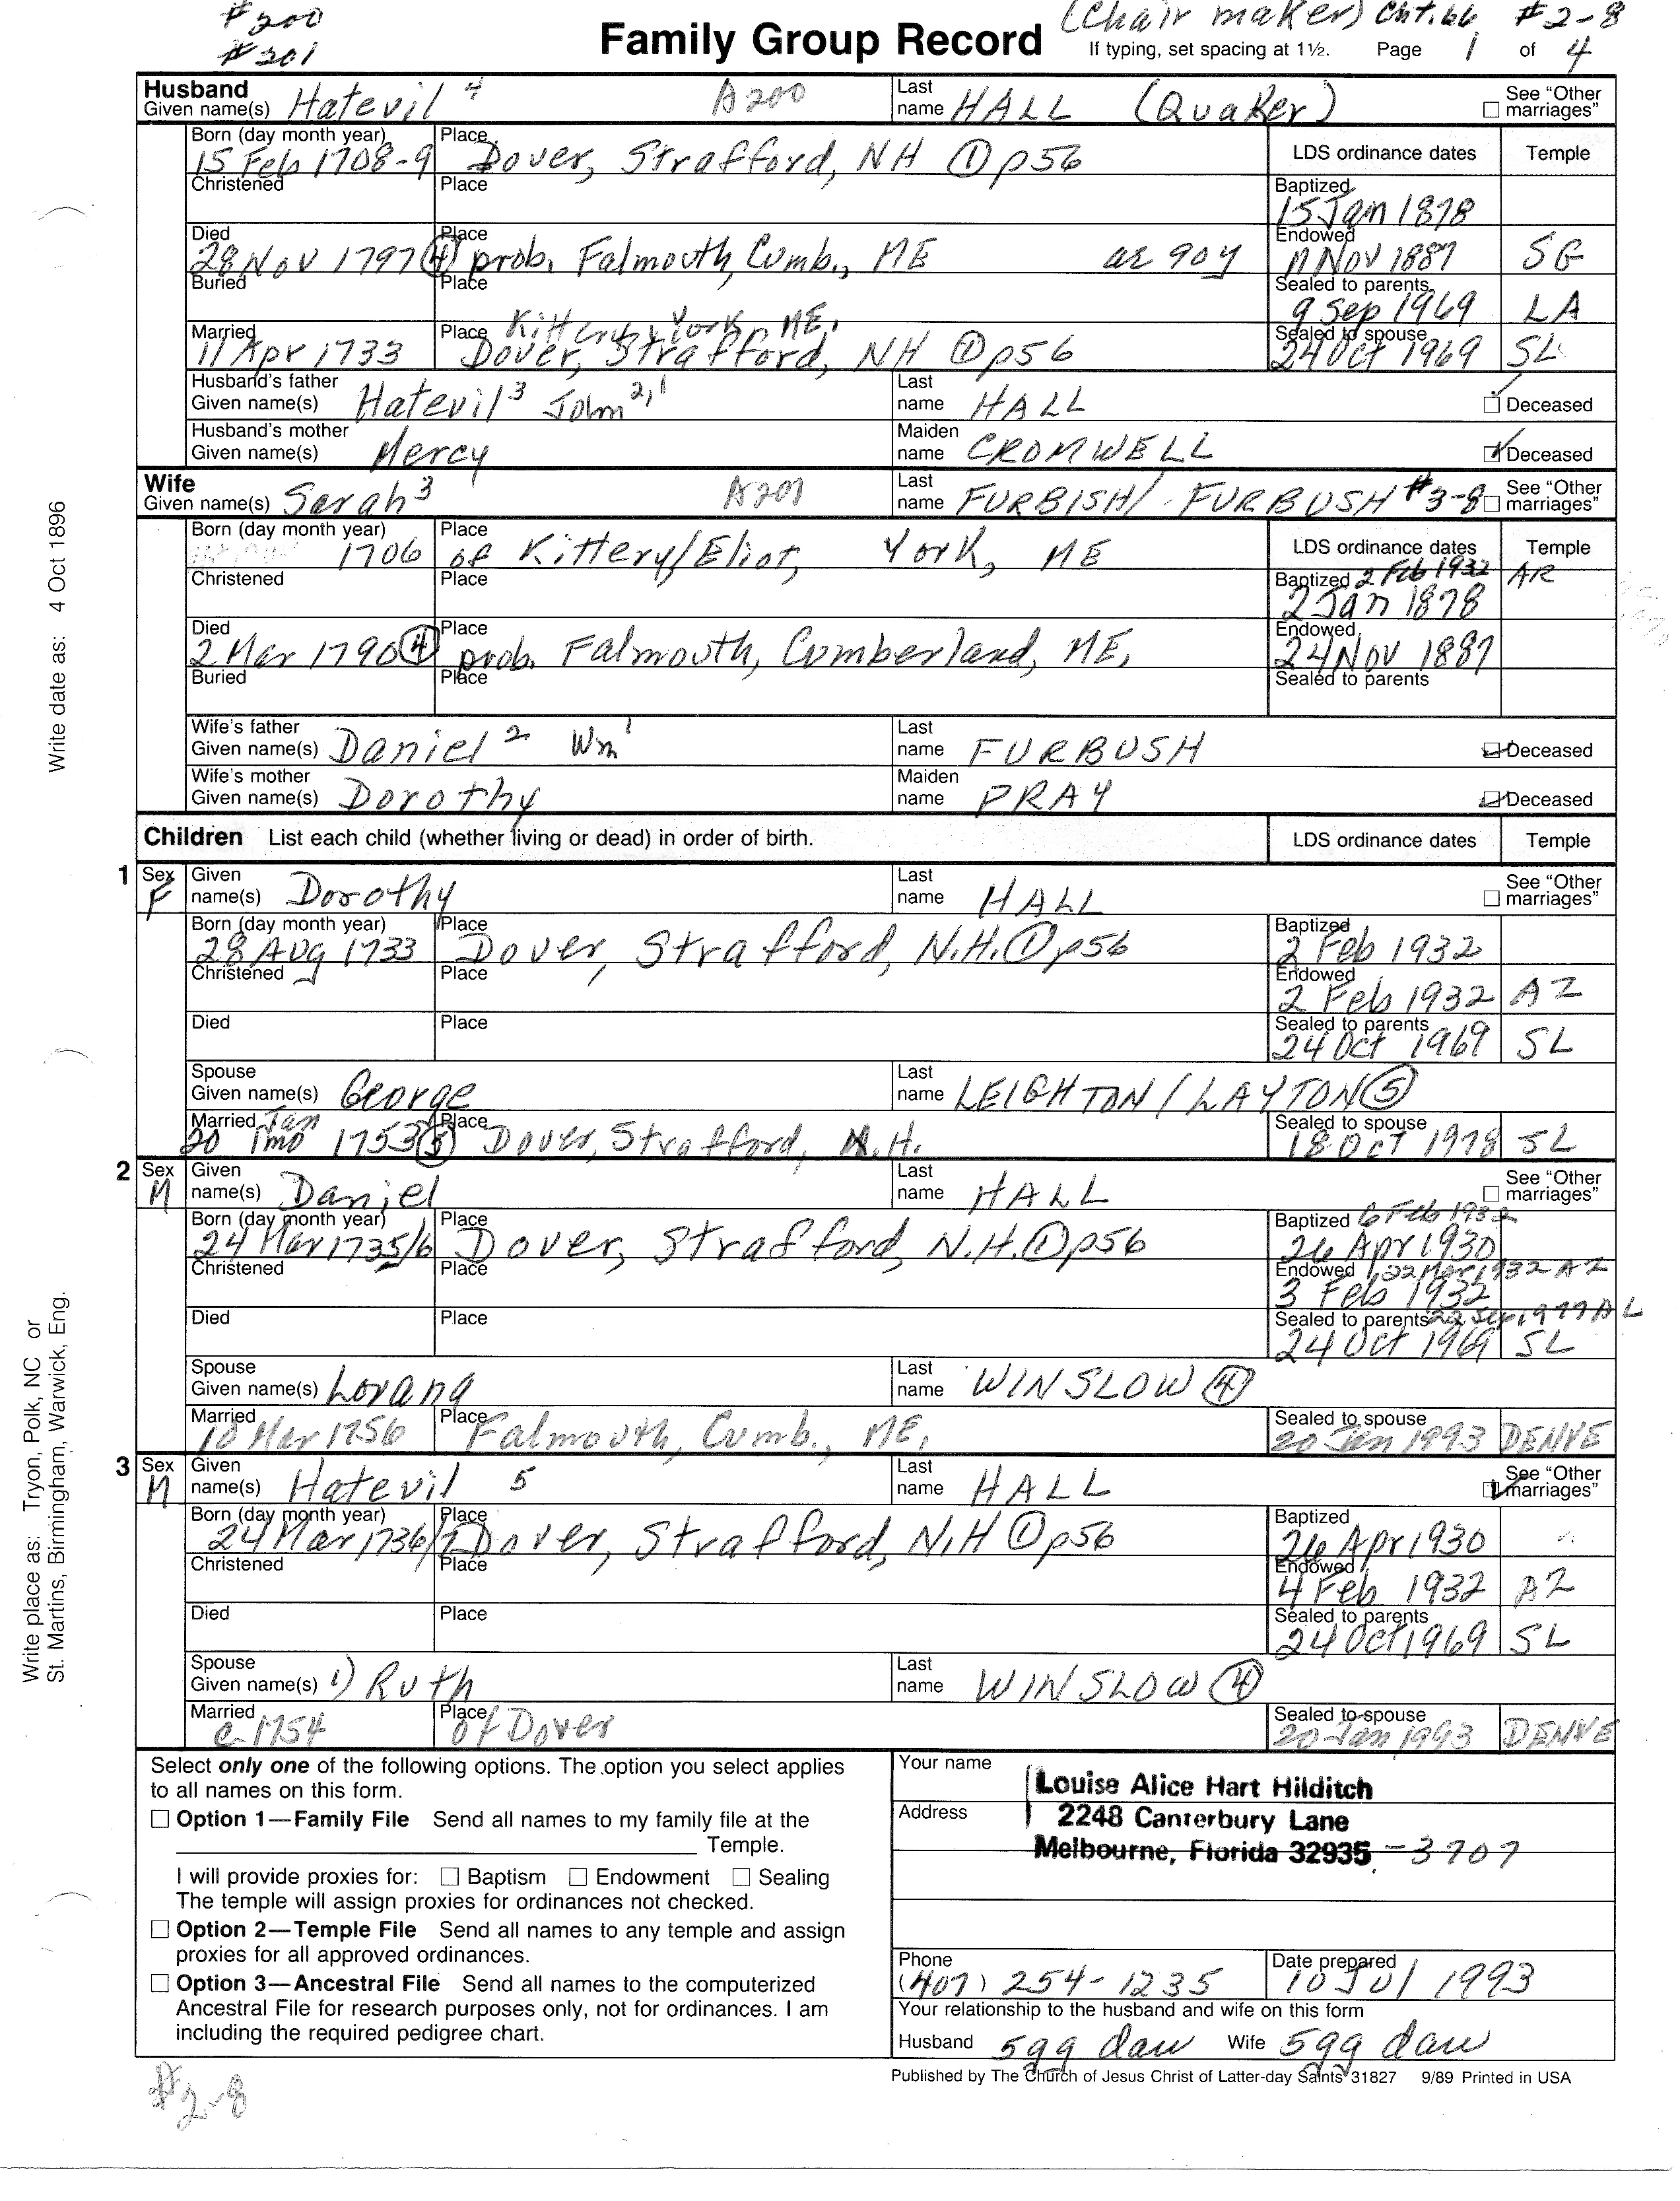 #200 (Chair maker) Cht. 66 #2-8
#201 Family Group Record If typing, set spacing at 1½. Page 1 of 4
Husband
Given name(s) Hatevil 4 A200 Last name HALL (Quaker) See “Other marriages”
Born (day month year) Place LDS ordinance dates Temple
15 Feb 1708-9 Dover, Strafford, NH ① p56
Christened Place Baptized
15 Jan 1878
Died Place Endowed
28 Nov 1797 ④ prob. Falmouth, Cumb., ME ae 90y Nov 1887 SG
Buried Place Sealed to parents
9 Sep 1969 LA
Married Place Kittery, York, ME, Sealed to spouse
11 Apr 1733 Dover, Strafford, NH ① p56 24 Oct 1969 SL
Husband's father
Given name(s) Hatevil 3 John 2,1 Last name HALL Deceased
Husband's mother
Given name(s) Mercy Maiden name CROMWELL Deceased
Wife
Given name(s) Sarah 3 A201 Last name FURBISH/ FURBUSH #3-8 See “Other marriages”
Born (day month year) Place LDS ordinance dates Temple
1706 of Kittery/Eliot, York, ME
Christened Place Baptized 2 Feb 1932 AR
2 Jan 1878
Died Place Endowed
2 Mar 1790 ④ prob. Falmouth, Cumberland, ME, 24 Nov 1887
Buried Place Sealed to parents
Wife's father
Given name(s) Daniel 2 Wm 1 Last name FURBUSH Deceased
Wife's mother
Given name(s) Dorothy Maiden name PRAY Deceased
Children List each child (whether living or dead) in order of birth. LDS ordinance dates Temple
1 Sex F Given name(s) Dorothy Last name HALL See “Other marriages”
Born (day month year) Place Baptized
28 Aug 1733 Dover, Strafford, N.H. ① p56 2 Feb 1932
Christened Place Endowed
2 Feb 1932 AZ
Died Place Sealed to parents
24 Oct 1969 SL
Spouse
Given name(s) George Last name LEIGHTON / LAYTON ⑤
Married Jan Place Sealed to spouse
20 1mo 1753 ⑤ Dover, Strafford, N.H. 18 Oct 1978 SL
2 Sex M Given name(s) Daniel Last name HALL See “Other marriages”
Born (day month year) Place Baptized 6 Feb 1932
24 Mar 1735/6 Dover, Strafford, N.H. ① p56 26 Apr 1930
Christened Place Endowed 22 Mar 1932 AZ
3 Feb 1932
Died Place Sealed to parents 22 Sep 1977 AL
24 Oct 1969 SL
Spouse
Given name(s) Lorana Last name WINSLOW ④
Married Place Sealed to spouse
10 Mar 1756 Falmouth, Cumb., ME, 20 Jan 1993 DENVE
3 Sex M Given name(s) Hatevil 5 Last name HALL See “Other marriages”
Born (day month year) Place Baptized
24 Mar 1736/7 Dover, Strafford, N.H ① p56 26 Apr 1930
Christened Place Endowed
4 Feb 1932 AZ
Died Place Sealed to parents
24 Oct 1969 SL
Spouse
Given name(s) 1) Ruth Last name WINSLOW ④
Married Place Sealed to spouse
c. 1754 of Dover 20 Jan 1993 DENVE
Select only one of the following options. The option you select applies
to all names on this form.
Option 1—Family File Send all names to my family file at the
Temple.
I will provide proxies for: Baptism Endowment Sealing
The temple will assign proxies for ordinances not checked.
Option 2—Temple File Send all names to any temple and assign
proxies for all approved ordinances.
Option 3—Ancestral File Send all names to the computerized
Ancestral File for research purposes only, not for ordinances. I am
including the required pedigree chart.
Your name Louise Alice Hart Hilditch
Address 2248 Canterbury Lane
Melbourne, Florida 32935 -3707
Phone Date prepared
(407) 254-1235 10 Jul 1993
Your relationship to the husband and wife on this form
Husband 5gg dau Wife 5gg dau
Published by The Church of Jesus Christ of Latter-day Saints 31827 9/89 Printed in USA
#2-8
Write date as: 4 Oct 1896
Write place as: Tryon, Polk, NC or
St. Martins, Birmingham, Warwick, Eng.